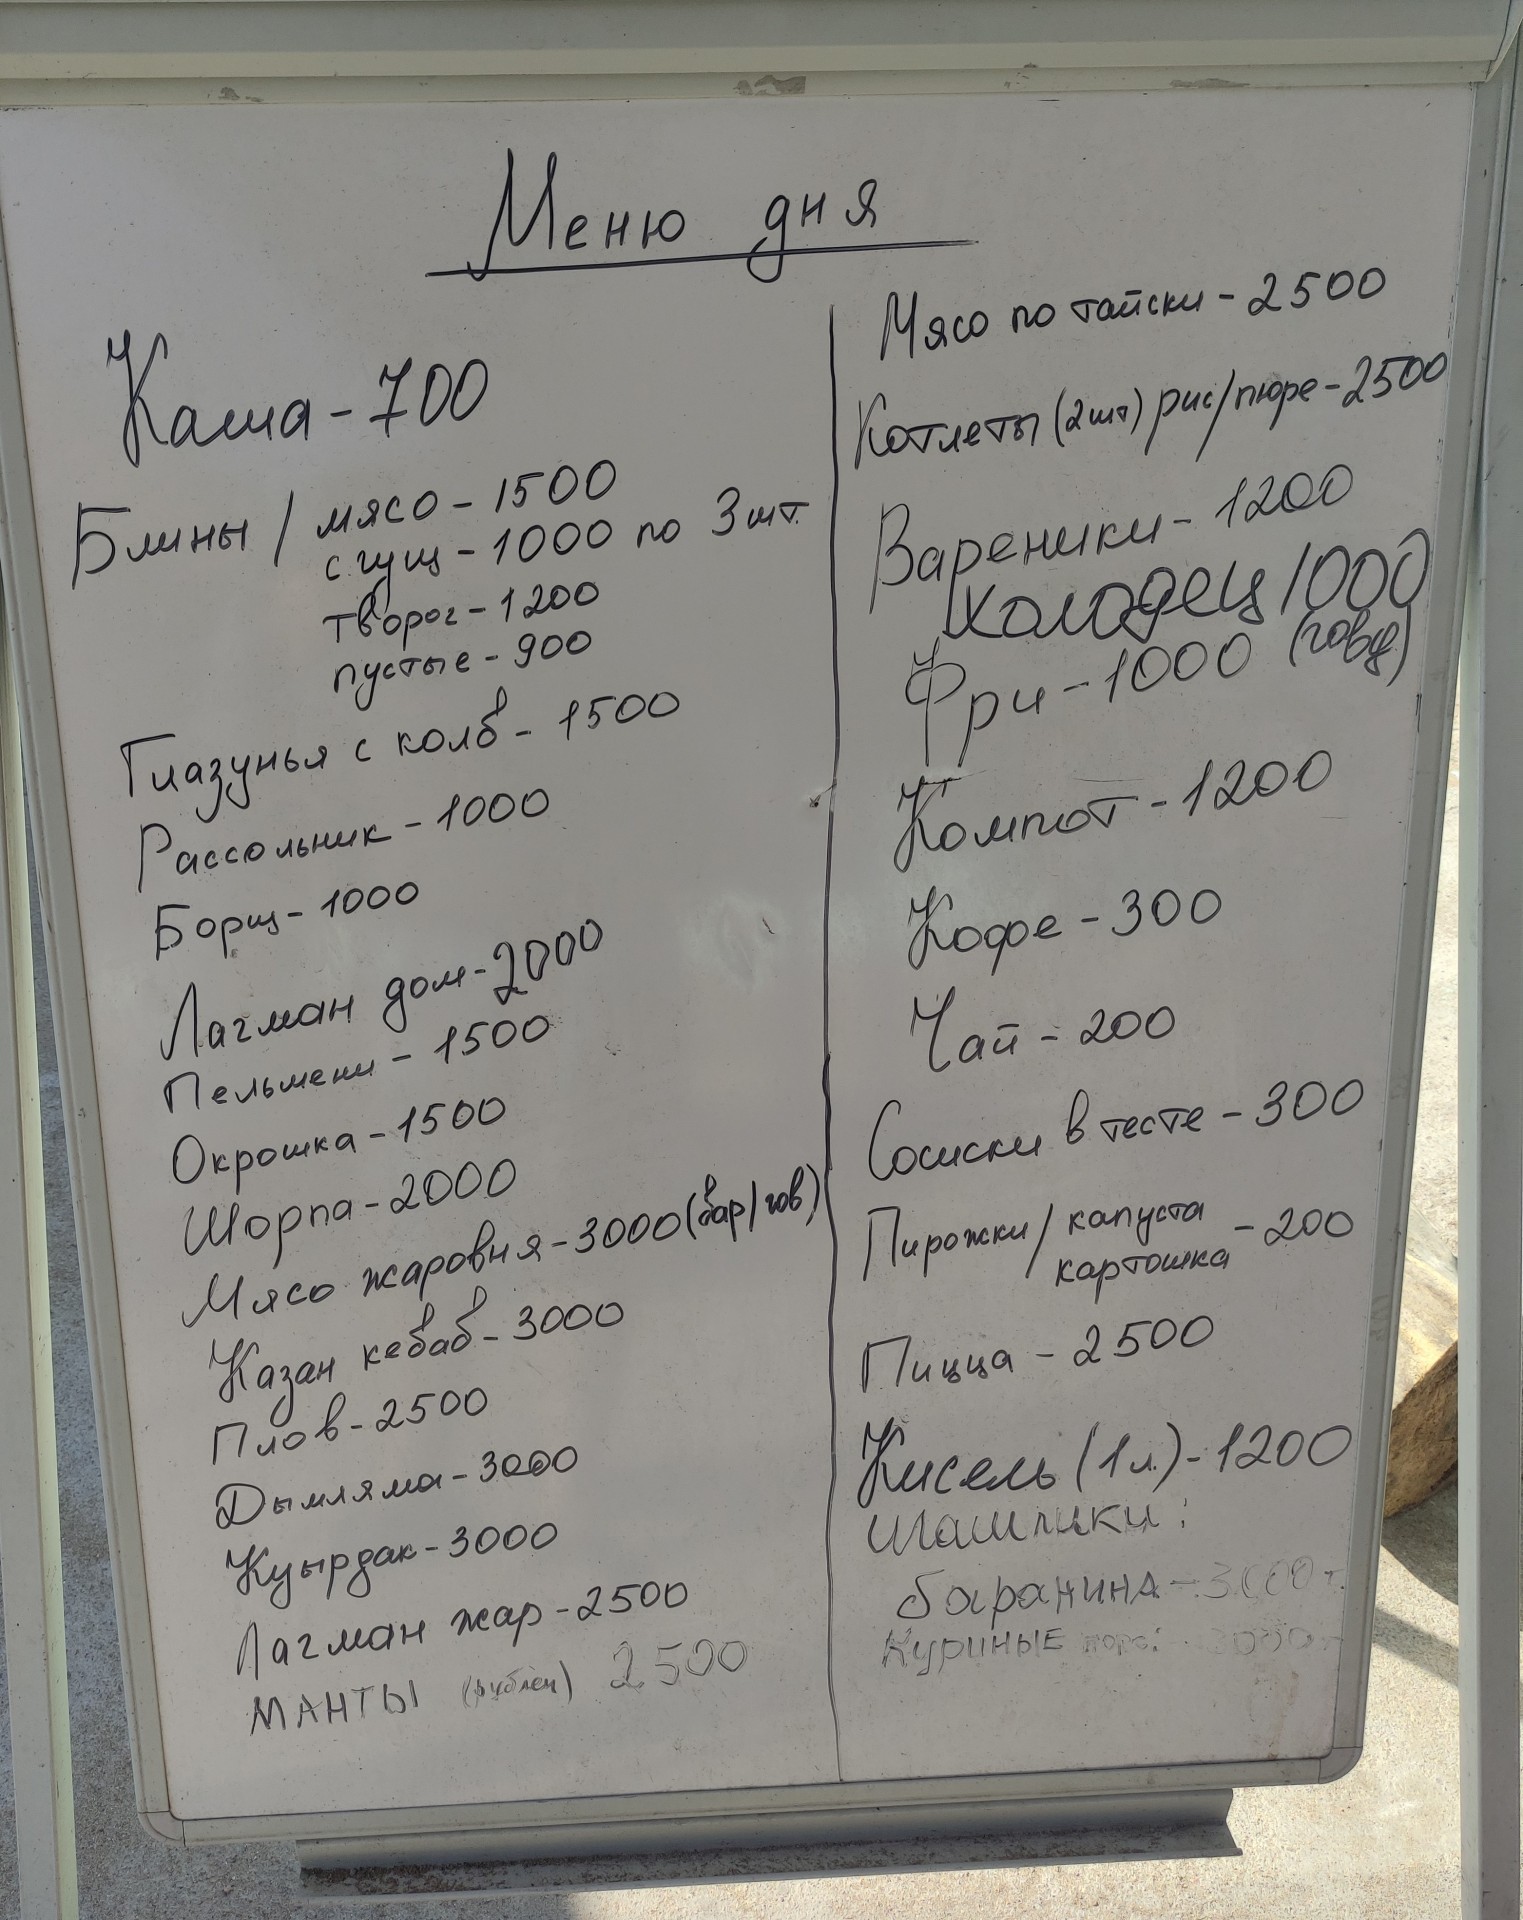 Меню дня
Каша - 700
Блины / мясо - 1500
сгущ - 1000 по 3шт.
творог - 1200
пустые - 900
Глазунья с колб - 1500
Рассольник - 1000
Борщ - 1000
Лагман дом - 2000
Пельмени - 1500
Окрошка - 1500
Шорпа - 2000
Мясо жаровня - 3000 (бар/гов)
Казан кебаб - 3000
Плов - 2500
Дымляма - 3000
Куырдак - 3000
Лагман жар - 2500
МАНТЫ (рублен) 2500
Мясо по тайски - 2500
Котлеты (2шт) рис/пюре - 2500
Вареники - 1200
холодец 1000
(говяд)
Фри - 1000
Компот - 1200
Кофе - 300
Чай - 200
Сосиски в тесте - 300
Пирожки / капуста - 200
картошка
Пицца - 2500
Кисель (1л.) - 1200
Шашлыки:
баранина - 3000 т.
Куриные